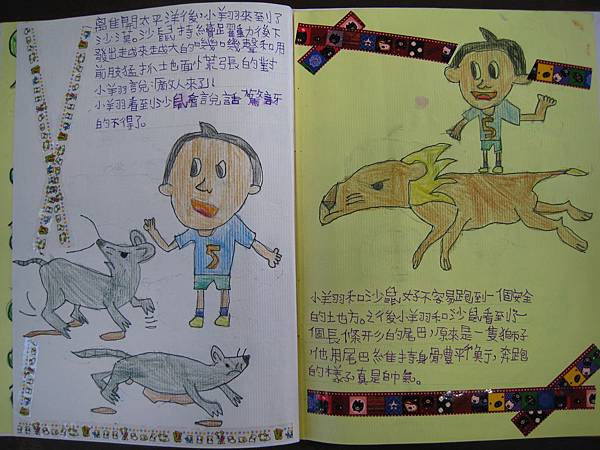 離開太平洋後,小羊羽來到了
沙漠。沙鼠持續踮動後下
發出越來越大的噗噗聲和用
前肢猛抓地面,緊張的對
小羊羽說:「敵人來了!」
小羊羽看到沙鼠會說話驚訝
的不得了。
5
5
小羊羽和沙鼠好不容易跑到一個安全
的地方。之後小羊羽和沙鼠看到了一
個長條形的尾巴,原來是一隻獅子,
他用尾巴維持身體平衡,奔跑
的樣子真是帥氣。